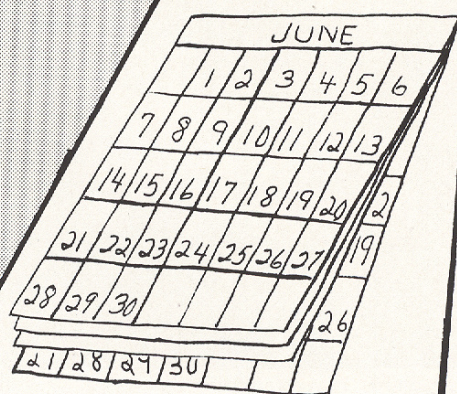 JUNE
1 2 3 4 5 6
7 8 9 10 11 12 13
14 15 16 17 18 19 20
2
21 22 23 24 25 26 27
19
28 29 30
26
21 28 29 30